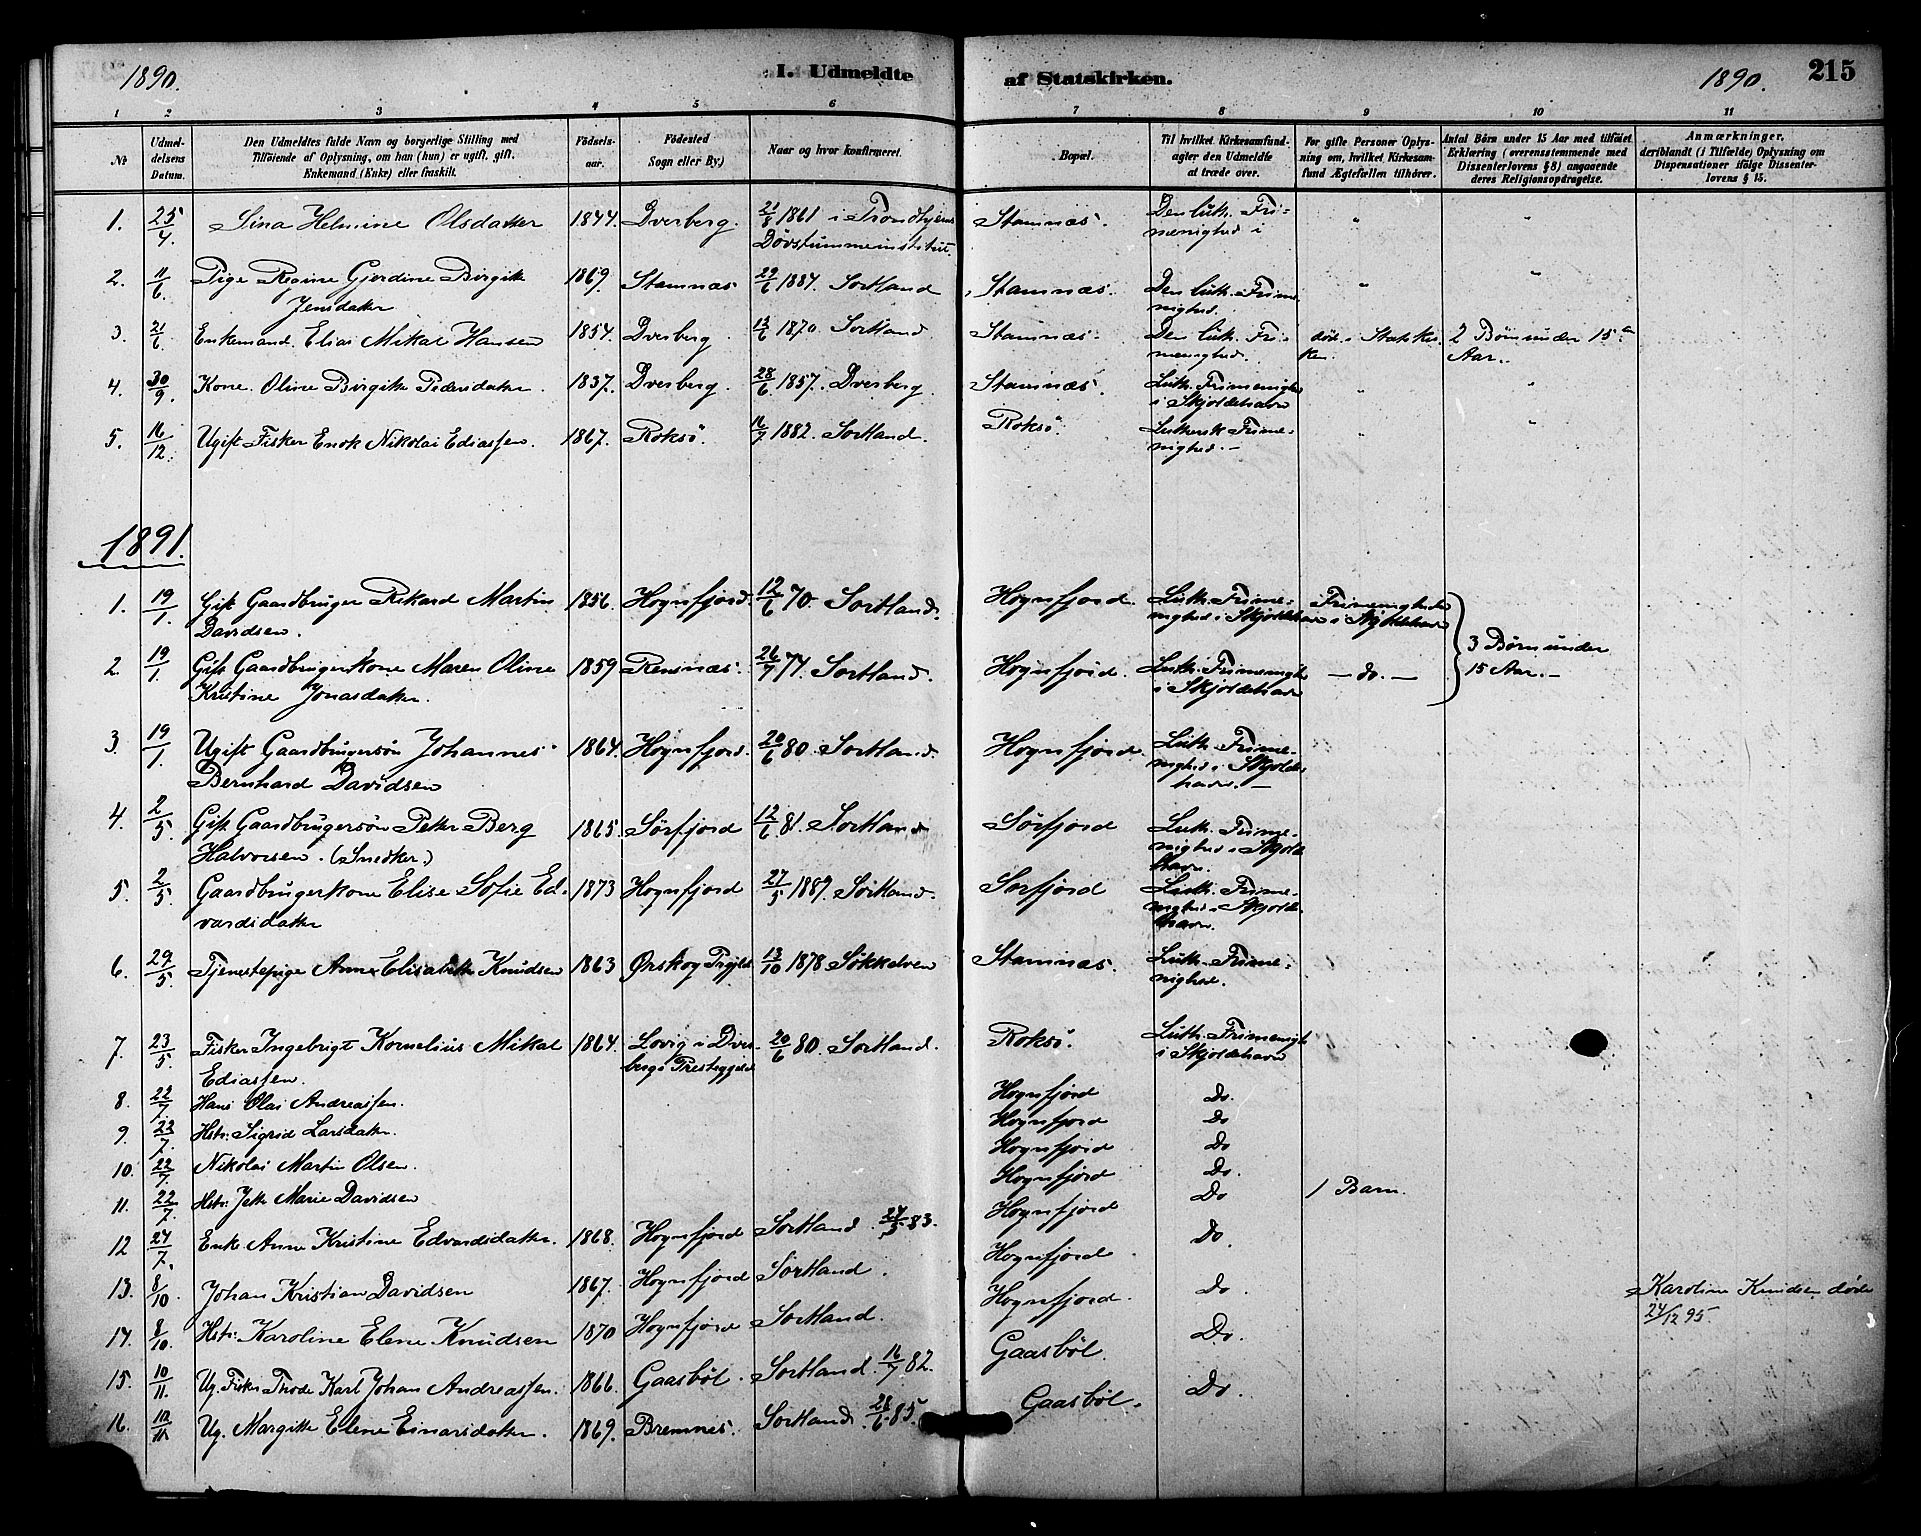 1890. I. Udmeldte af Statskirken. 1890. 215
1 2 3 4 5 6 7 8 9 10 11
No
Udmel-
delsens
Datum.
Den Udmeldtes fulde Navn og borgerlige Stilling med
Tilføiende af Oplysning, om han (hun) er ugift, gift,
Enkemand (Enke) eller fraskilt.
Fødsels-
aar.
Fødested
Sogn eller By)
Naar og hvor konfirmeret.
Bopæl.
Til hvilket Kirkesamfund-
agter den Udmeldte
at træde over.
For gifte Personer Oplys-
ning om, hvilket Kirkesam-
fund Ægtefællen tilhører.
Antal Børn under 15 Aar med tilføiet
Erklæring (overensstemmende med
Dissenterlovens § 8) angaaende
deres Religionsopdragelse.
Anmærkninger,
deriblandt (i Tilfælde) Oplysning om
Dispensationer ifølge Dissenter-
lovens § 15.
1. 25/4 Sina Helmine Olsdatter 1844. Dverberg. 21/8 1861 i Trondhjems Stamnæs. Den luth. Fri- " "
Døvstummeinstitut. menighed i
2. 11/6 Pige Regine Gjerdine Birgitte 1869. Stamnæs 29/6 1884. Sortland Stamnæs. Den luth. Frime- " "
Jensdatter nighed.
3. 21/6 Enkemand Elias Mikal Hansen 1854. Dverberg 12/6 1870. Sortland. Stamnæs. Den luth. Fri- død i Statskir- 2 Børn under 15
menighed. ken. Aar.
4. 30/9 Kone Oline Birgitte Pedersdatter. 1837. Dverberg. 28/6 1857. Dverberg. Stamnæs. Luth. Frimenighed " "
i Skjoldehavn
5. 16/12. Ugift Fisker Enok Nikolai Ediassen. 1867. Roksö. 16/7 1882. Sortland. Roksö. Luthersk Frime- " "
nighed. —
1891.
1. 19/1 Gift Gaardbruger Rikard Martin 1856. Hognfjord. 12/6 70. Sortland. Hognfjord. Luth. Frime- Frimenigheden
Davidsen. nighed i Skjoldehavn i Skjoldehavn
3 Børn under
15 Aar. —
2. 19/1 Gift Gaardbrugerkone Maren Oline 1859 Rensnæs. 26/7 74. Sortland. Hognfjord. Luth. Frimenighed — do. —
Kristine Jonasdatter. i Skjoldehavn
3. 19/1. Ugift Gaardbrugersøn Johannes 1864. Hognfjord. 20/6 80. Sortland. Hognfjord Luth. Frime-
Bernhard Davidsen nighed i Skjolde-
havn. —
4. 2/5 Gift Gaardbrugersøn Petter Berg 1865. Sörfjord 12/6 81. Sortland Sörfjord Luth. Frime-
Halvorsen. (Snedker.) nighed i Skjolde
havn.
5. 2/5. Gaardbrugerkone Elise Sofie Ed- 1873 Hognfjord 27/5 1889. Sortland. Sörfjord Luth. Frime-
vardsdatter nighed i Skjolde-
havn.
6. 29/5. Tjenestepige Anne Elisabeth Knudsen 1863 Ørskog Prgjeld 13/10 1878 Søkkelven Stamnæs. Luth. Frime-
nighed.
7. 23/5. Fisker Ingebrigt Kornelius Mikal 1864. Lovig i Dver- 20/6 80. Sortland. Roksö. Luth. Frimenigh
Ediassen. bergs Prestegjeld i Skjoldehavn
8. 22/7. Hans Olai Andreassen. Hognfjord Do.
9. 22/7. Hstr: Sigrid Larsdatter. Hognfjord Do
10. 22/7. Nikolai Martin Olsen. Hognfjord Do
11. 22/7. Hstr: Jette Marie Davidsen Hognfjord Do. 1 Barn.
12 24/7. Enke Anne Kristine Edvardsdatter. 1868. Hognfjord Sortland 83. Hognfjord Do
13. 8/10. Johan Kristian Davidsen 1867. Hognfjord Sortland. Hognfjord Do.
14. 8/10. Hstr: Karoline Elene Knudsen 1870 Hognfjord Sortland. Hognfjord. Do Karoline Knudsen døde
24/12 95.
15. 10/11. Ug. Fisker Thode Karl Johan Andreassen. 1866. Gaasböl. Sortland. 16/7 82. Gaasböl. Do.
16. 10/11. Ug. Margitte Elene Einarsdatter. 1869. Bremnes. Sortland. 28/6 85. Gaasböl. Do.